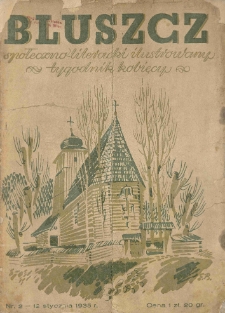 BLUSZCZ
społeczno-literacki ilustrowany
tygodnik kobiecy
Nr. 2 – 12 stycznia 1935 r.
Cena 1 zł. 20 gr.